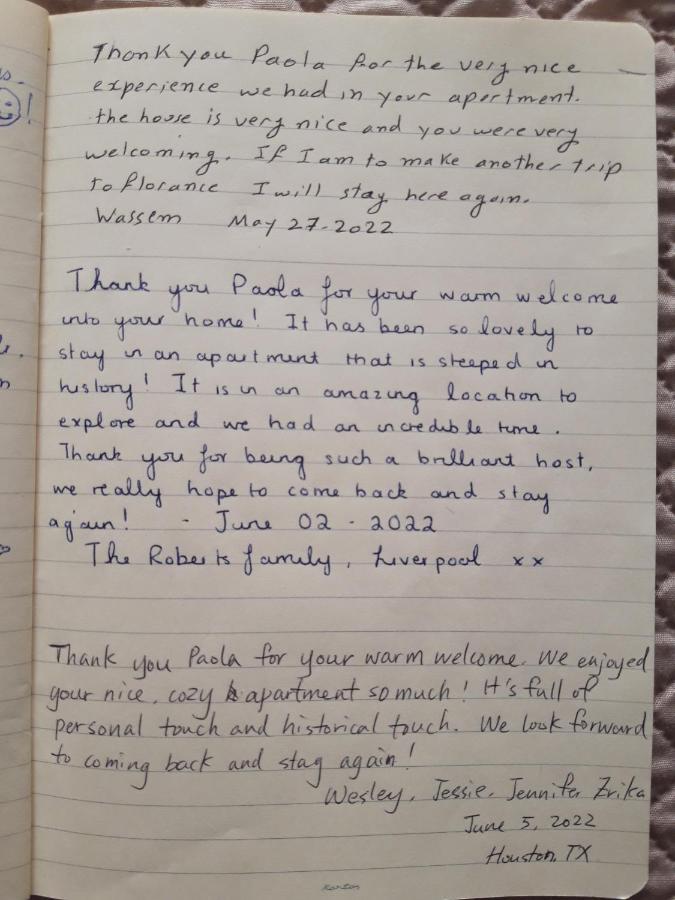 Thank you Paola for the very nice
experience we had in your apartment.
the house is very nice and you were very
welcoming. If I am to make another trip
to florance I will stay here again.
Wassem May 27-2022
Thank you Paola for your warm welcome
into your home! It has been so lovely to
stay in an apartment that is steeped in
history! It is in an amazing location to
explore and we had an incredible time.
Thank you for being such a brilliant host,
we really hope to come back and stay
again! - June 02 - 2022
The Roberts family, Liverpool xx
Thank you Paola for your warm welcome. We enjoyed
your nice, cozy apartment so much! It's full of
personal touch and historical touch. We look forward
to coming back and stay again!
Wesley, Jessie, Jennifer Erika
June 5, 2022
Houston, TX